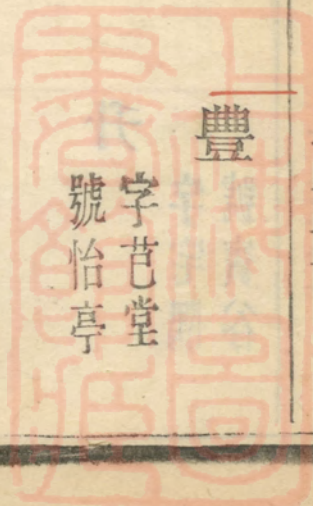 豐
字芑堂
號怡亭